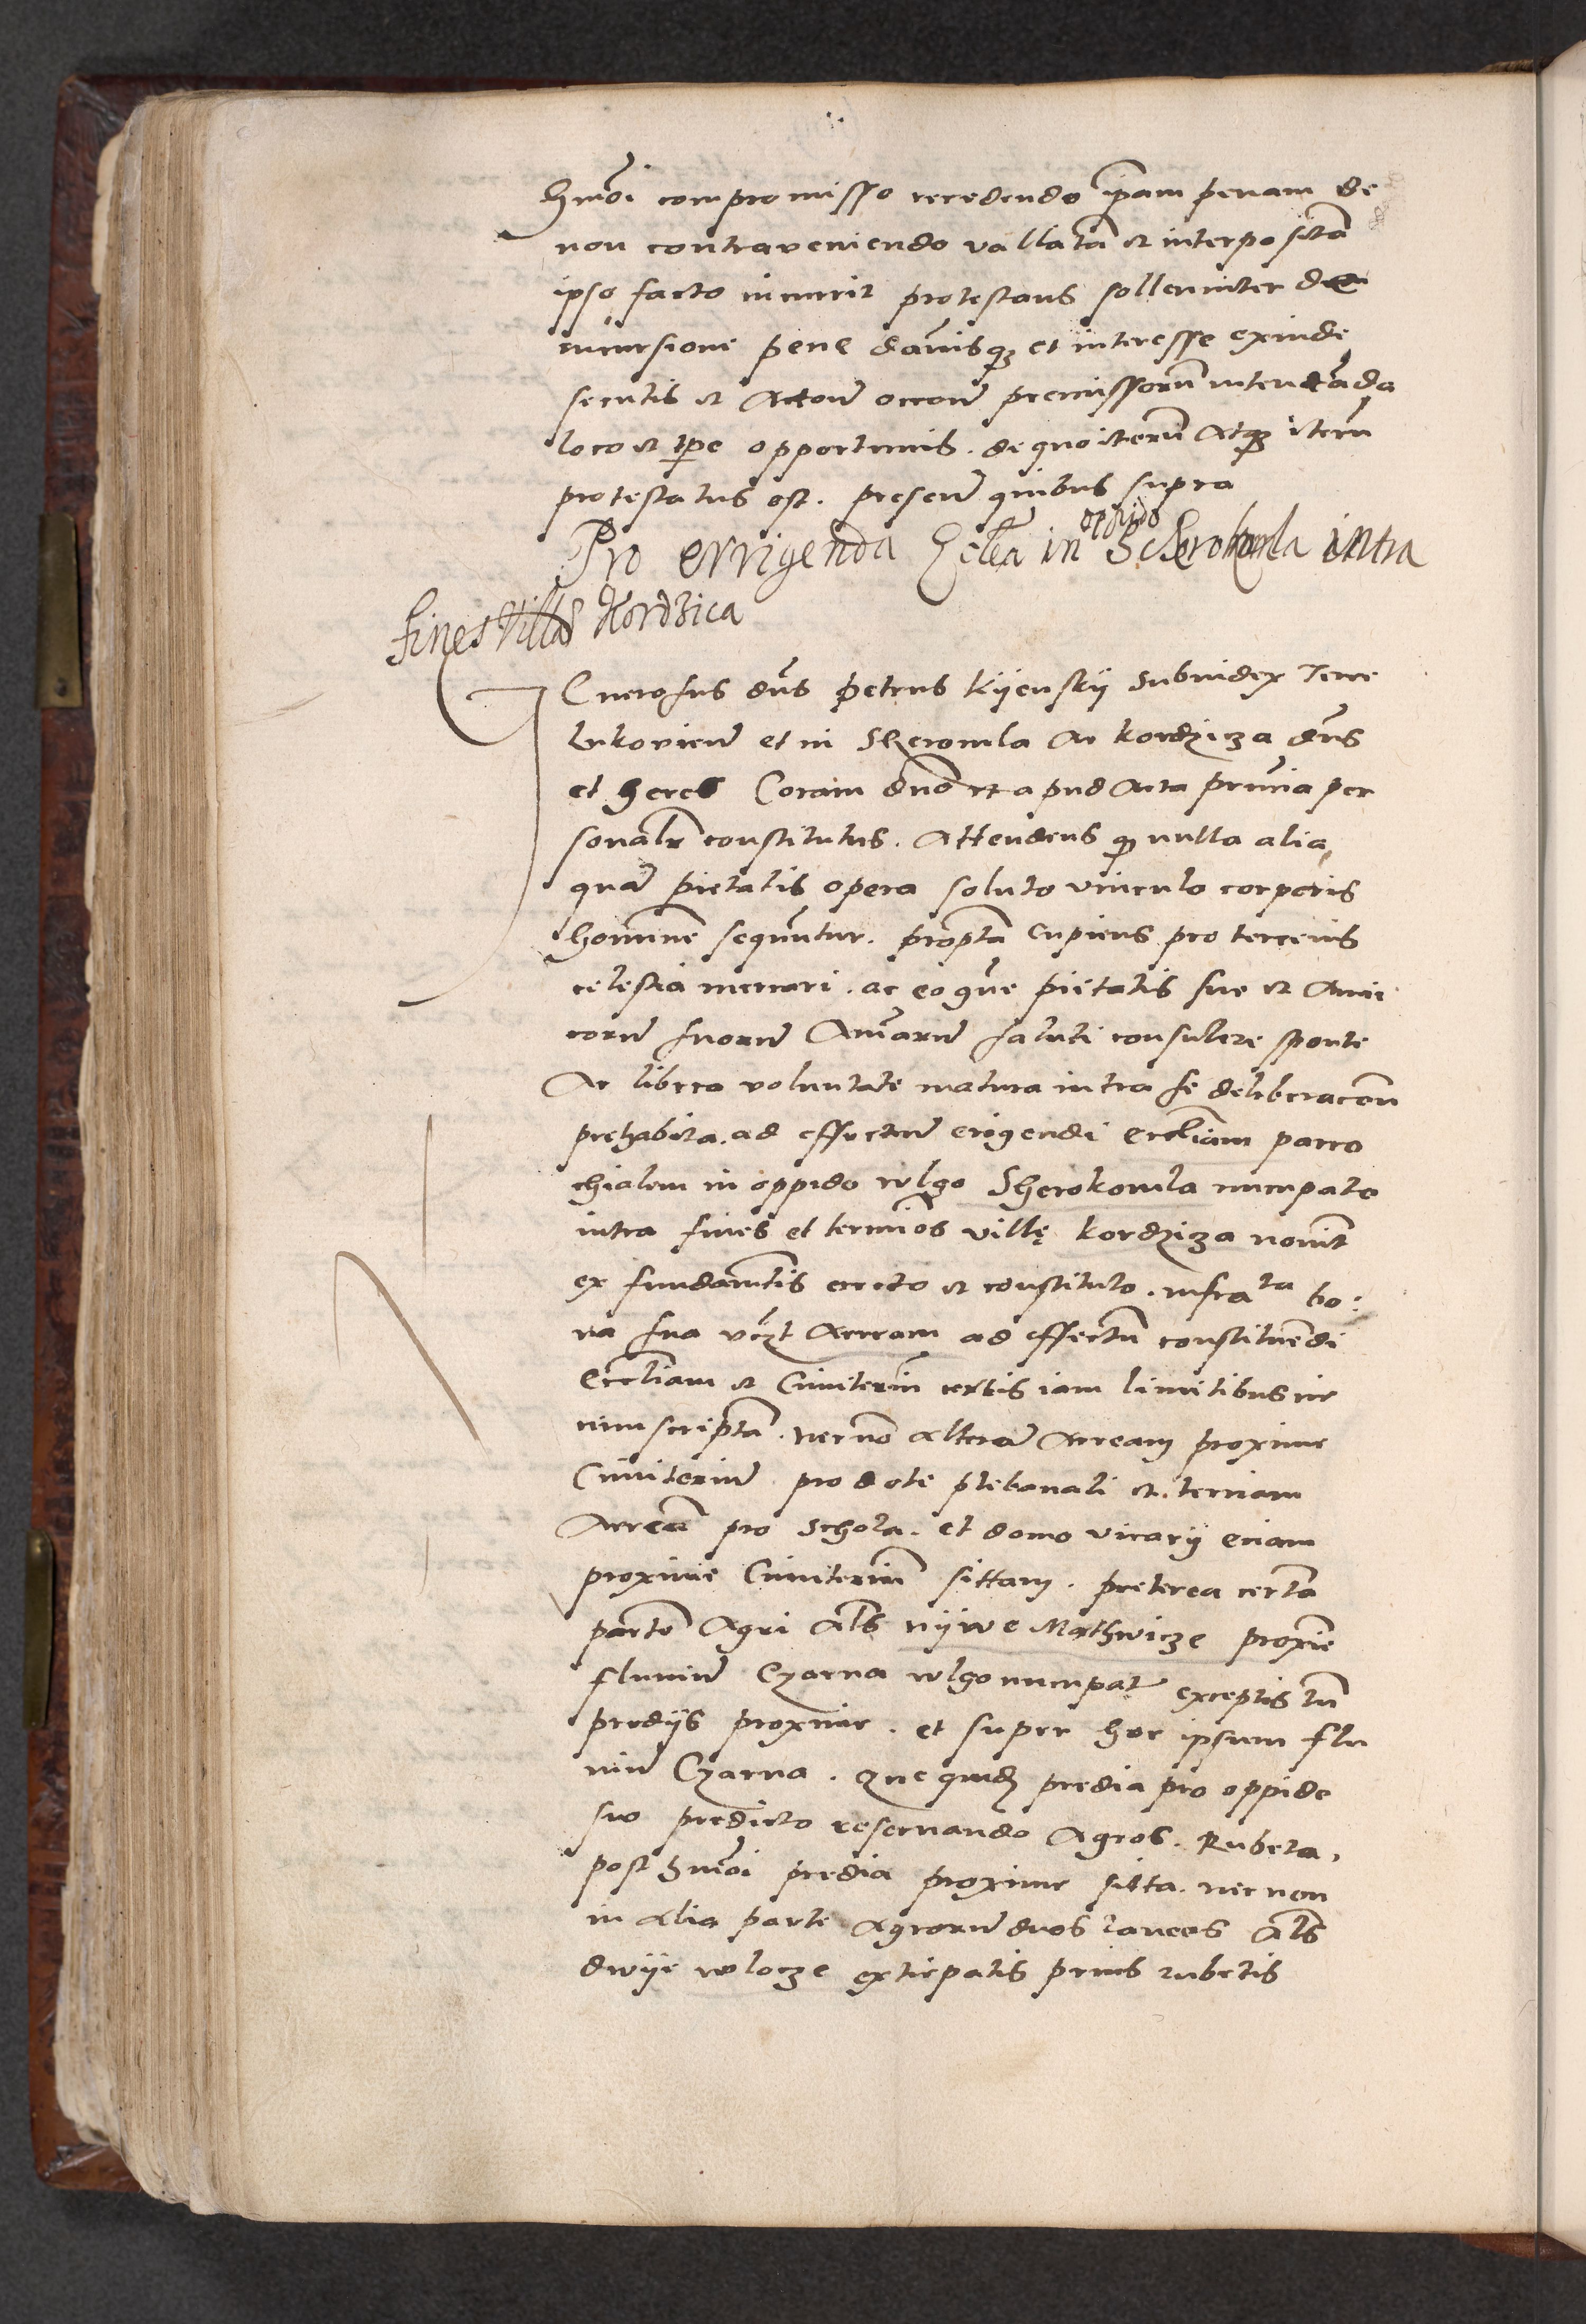 hmoi compromisso recedendo ipam penam de
non contraveniendo vallata et interposita
ipso facto incurrit protestans sollenniter de
incursione pene damnisqz et interesse exinde
secutis et Action occon premissorum intendenda
loco et tpe opportunis. de quo iterum Atqz iterum
protestatus est. presen quibus supra
Pro errigenda Eclia in oppido Scherokomla intra
fines villae Kordzica
Generosus dns petrus Kijenskij Subiudex Terre
Lukovien et in Sheromla Ac kordzicza dns
et heres Coram dno et apud Acta prnia per
sonalr constitutus. Attendens qz nulla alia
qua pietatis opera soluto vinculo corporis
homine sequntur. propta cupiens pro terrenis
celestia mercari. ac eoque pietatis sue et Ami
corum suorum Aniarum saluti consulere sponte
Ac libera voluntate matura intra se deliberacone
prehabita. ad effectum erigendi eccliam parro
chialem in oppido wlgo Sherokomla nuncupato
intra fines et terminos villę kordzicza novit
ex fundamtis errecto et constituto. infra ta bo:
na sua vczt Arream ad effectum constituendi
Eccliam et Cimiterium certis iam limitibus cir
cumscripta. necno altera Arream proxime
Cimiterium pro dote plebanali et terciam
Arream pro Schola. et domo vicarij eciam
proxime Cimiterium sittam. preterea certa
parte Agri als nijwe Mathwicze proxie
fluvium Czarna wlgo nuncupat exceptis tn
predijs proxime. et super hoc ipsum flu
vium Czarna. que quidz predia pro oppido
suo predicto reservando Agros. Rubeta,
post hmoi predia proxime sitta. nec non
in alia parte Agrorum duos laneos als
dwije wlocze extirpatis prius rubetis